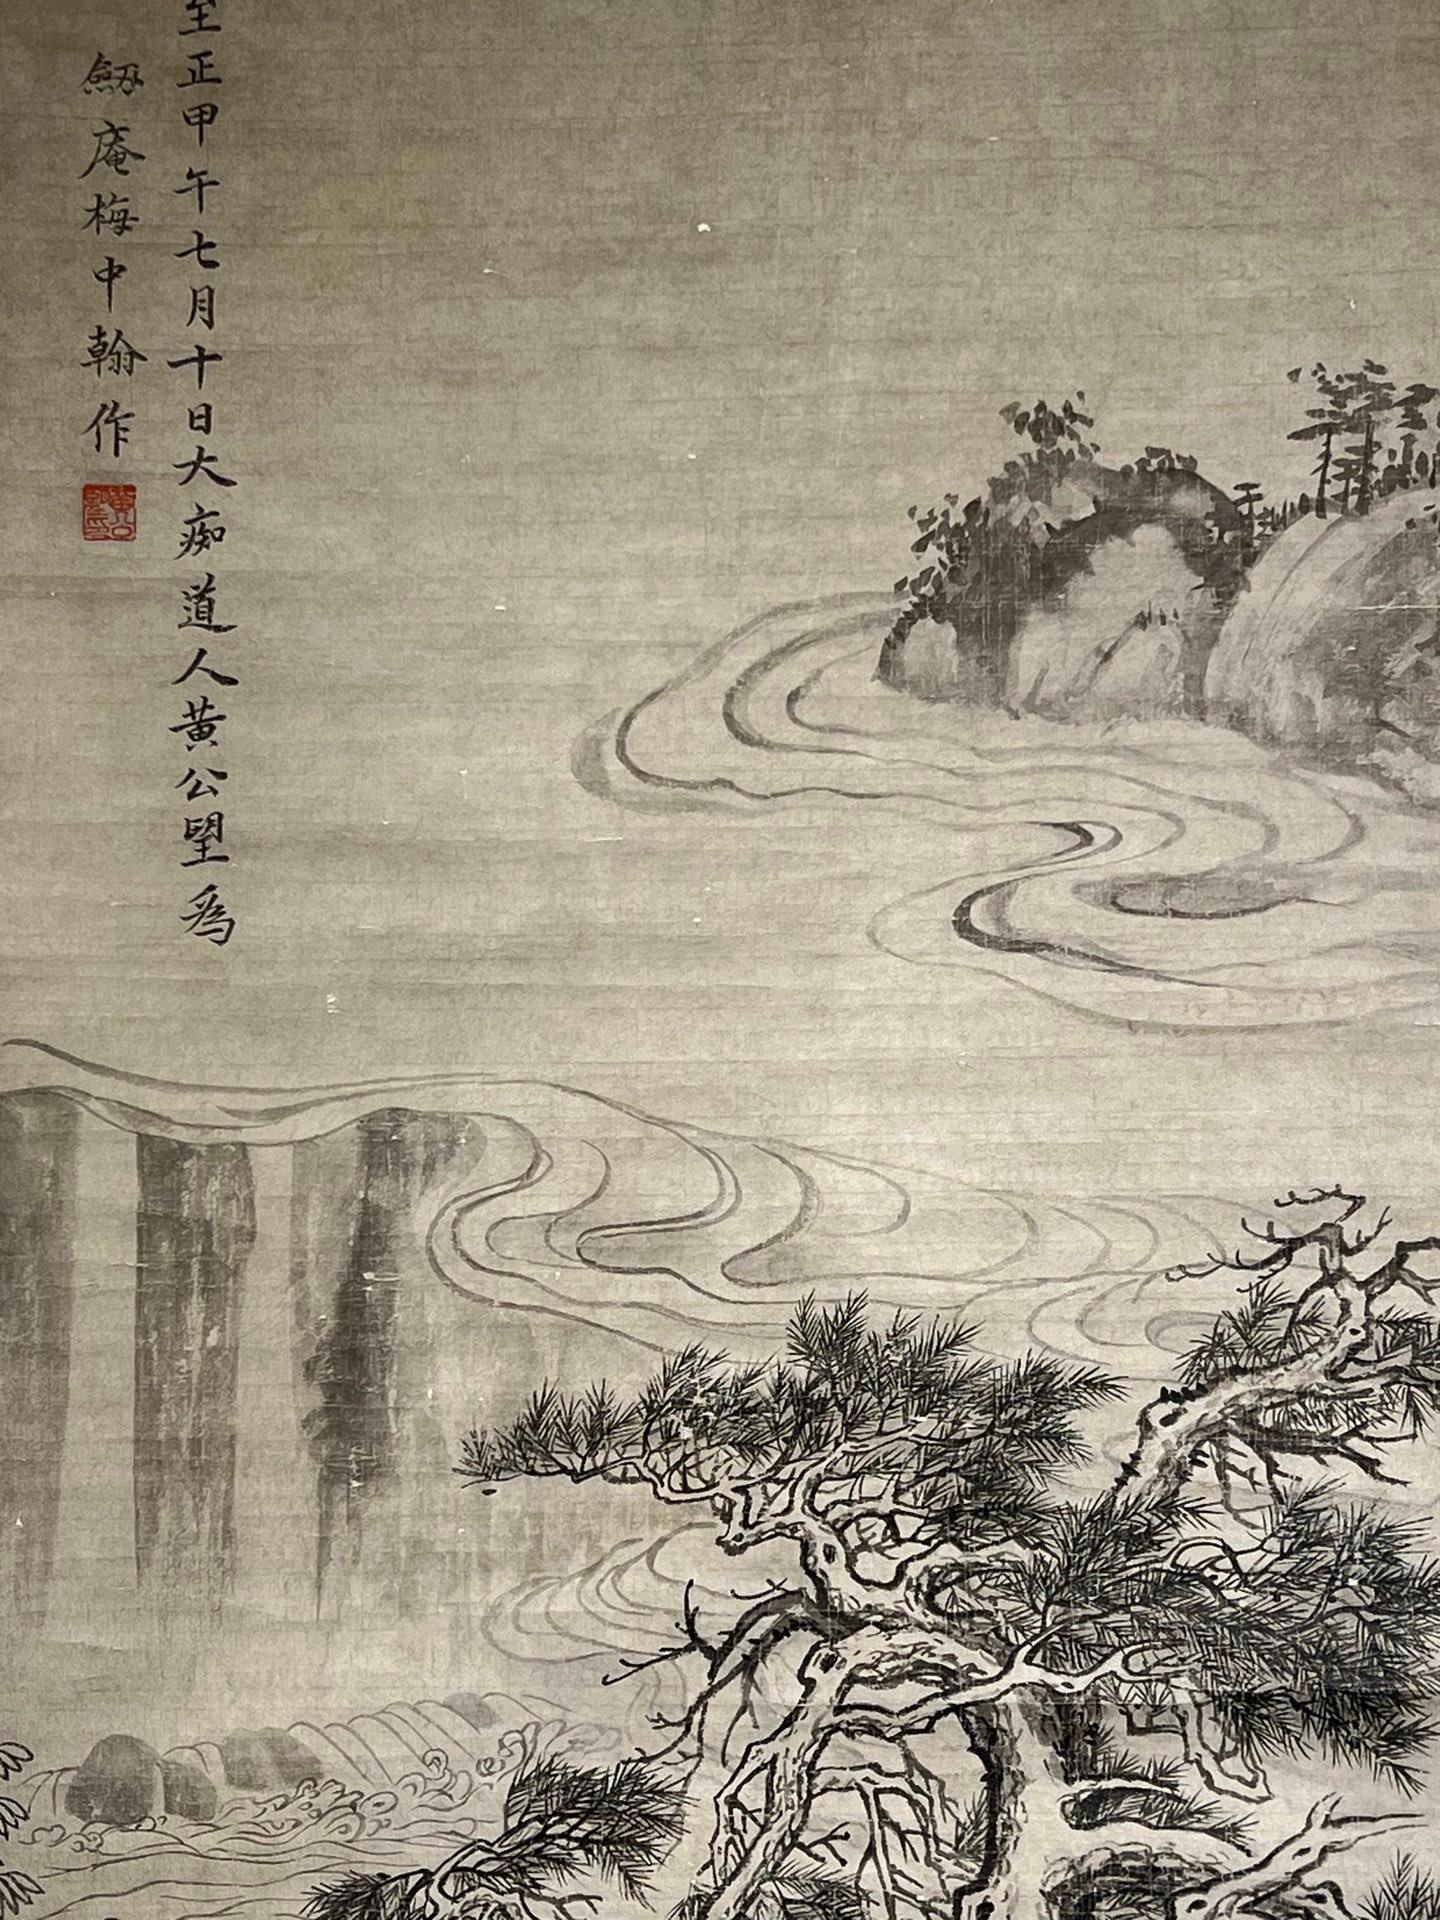 至正甲午七月十日大痴道人黄公望爲
劒庵梅中翰作
黄公望印